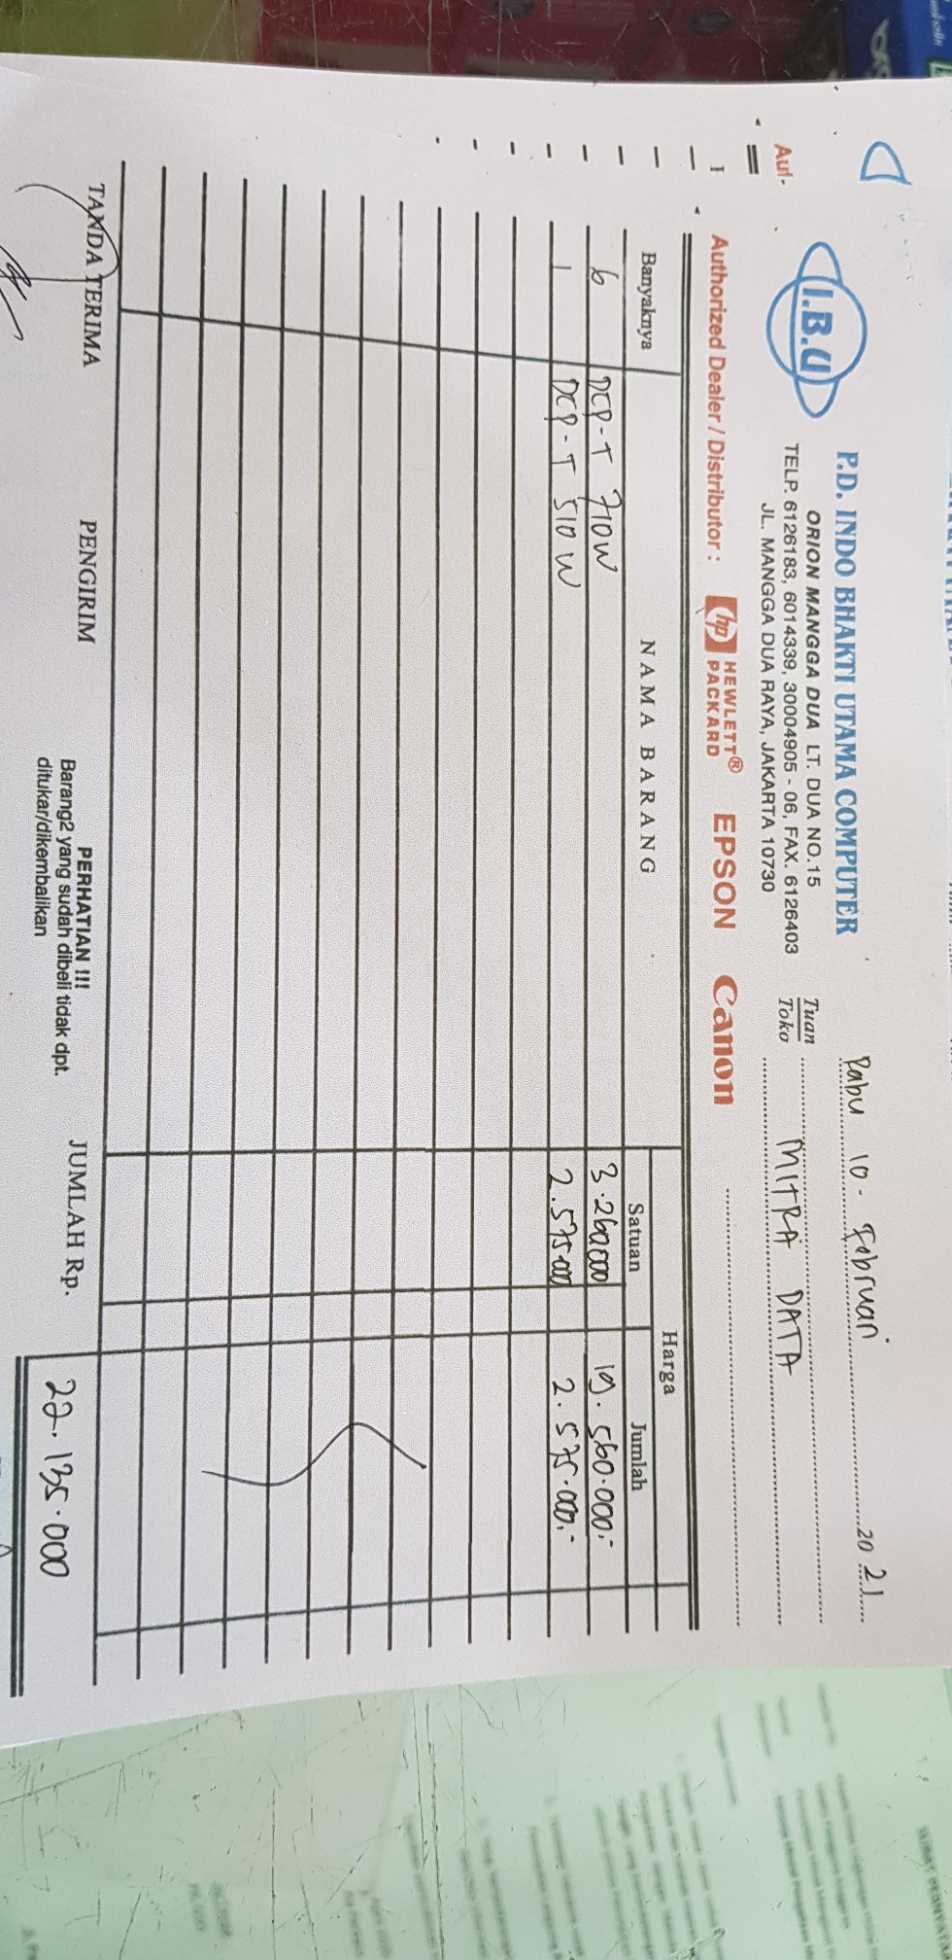 I.B.U
P.D. INDO BHAKTI UTAMA COMPUTER
ORION MANGGA DUA LT. DUA NO.15
TELP. 6126183, 6014339, 30004905 - 06, FAX. 6126403
JL. MANGGA DUA RAYA, JAKARTA 10730
Rabu 10 - Februari 2021
Tuan
Toko
MITRA DATA
Aut
Authorized Dealer / Distributor : hp HEWLETT® PACKARD EPSON Canon
Banyaknya NAMA BARANG Harga
Satuan Jumlah
6 DCP-T 710W 3.260000 19.560.000.-
1 DCP-T 510W 2.575.000 2.575.000.-
TANDA TERIMA PENGIRIM
PERHATIAN !!!
Barang2 yang sudah dibeli tidak dpt.
ditukar/dikembalikan
JUMLAH Rp. 22.135.000